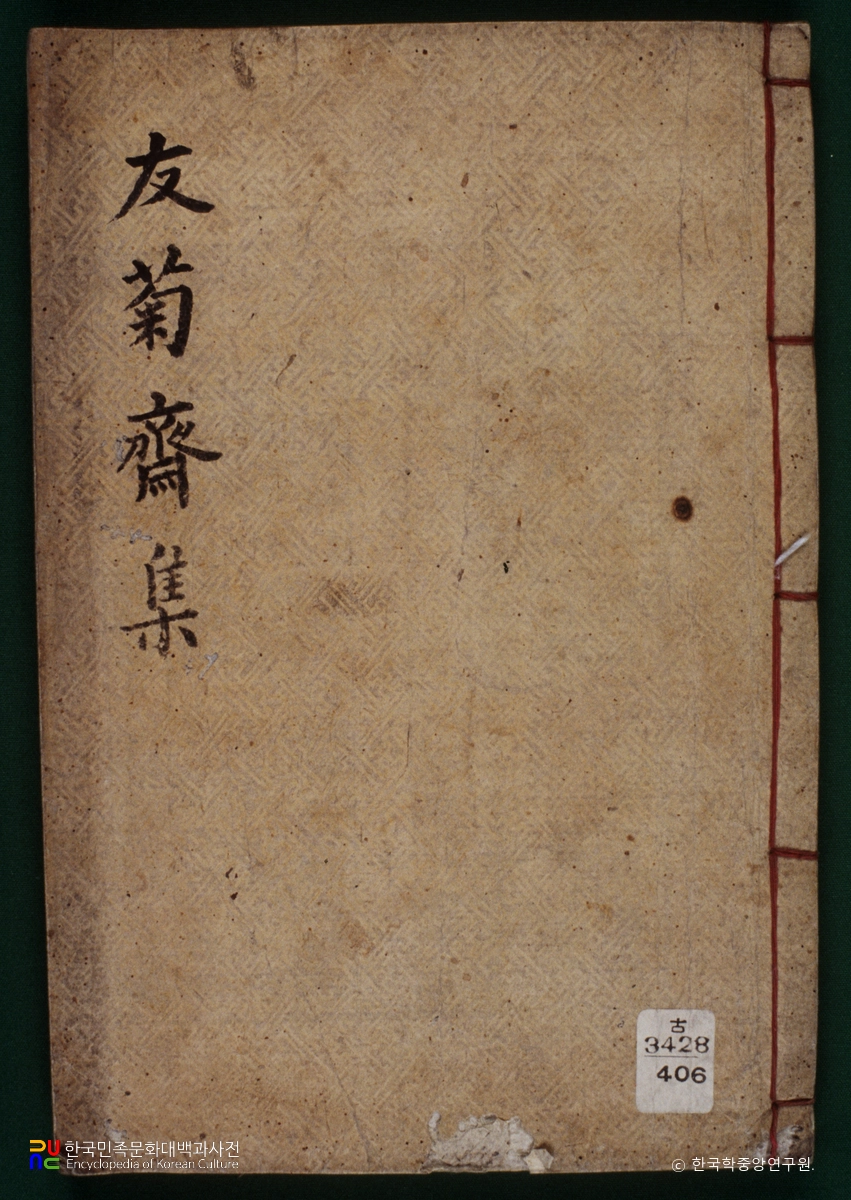 友菊齋集
古
3428
406
한국민족문화대백과사전
Encyclopedia of Korean Culture
© 한국학중앙연구원.